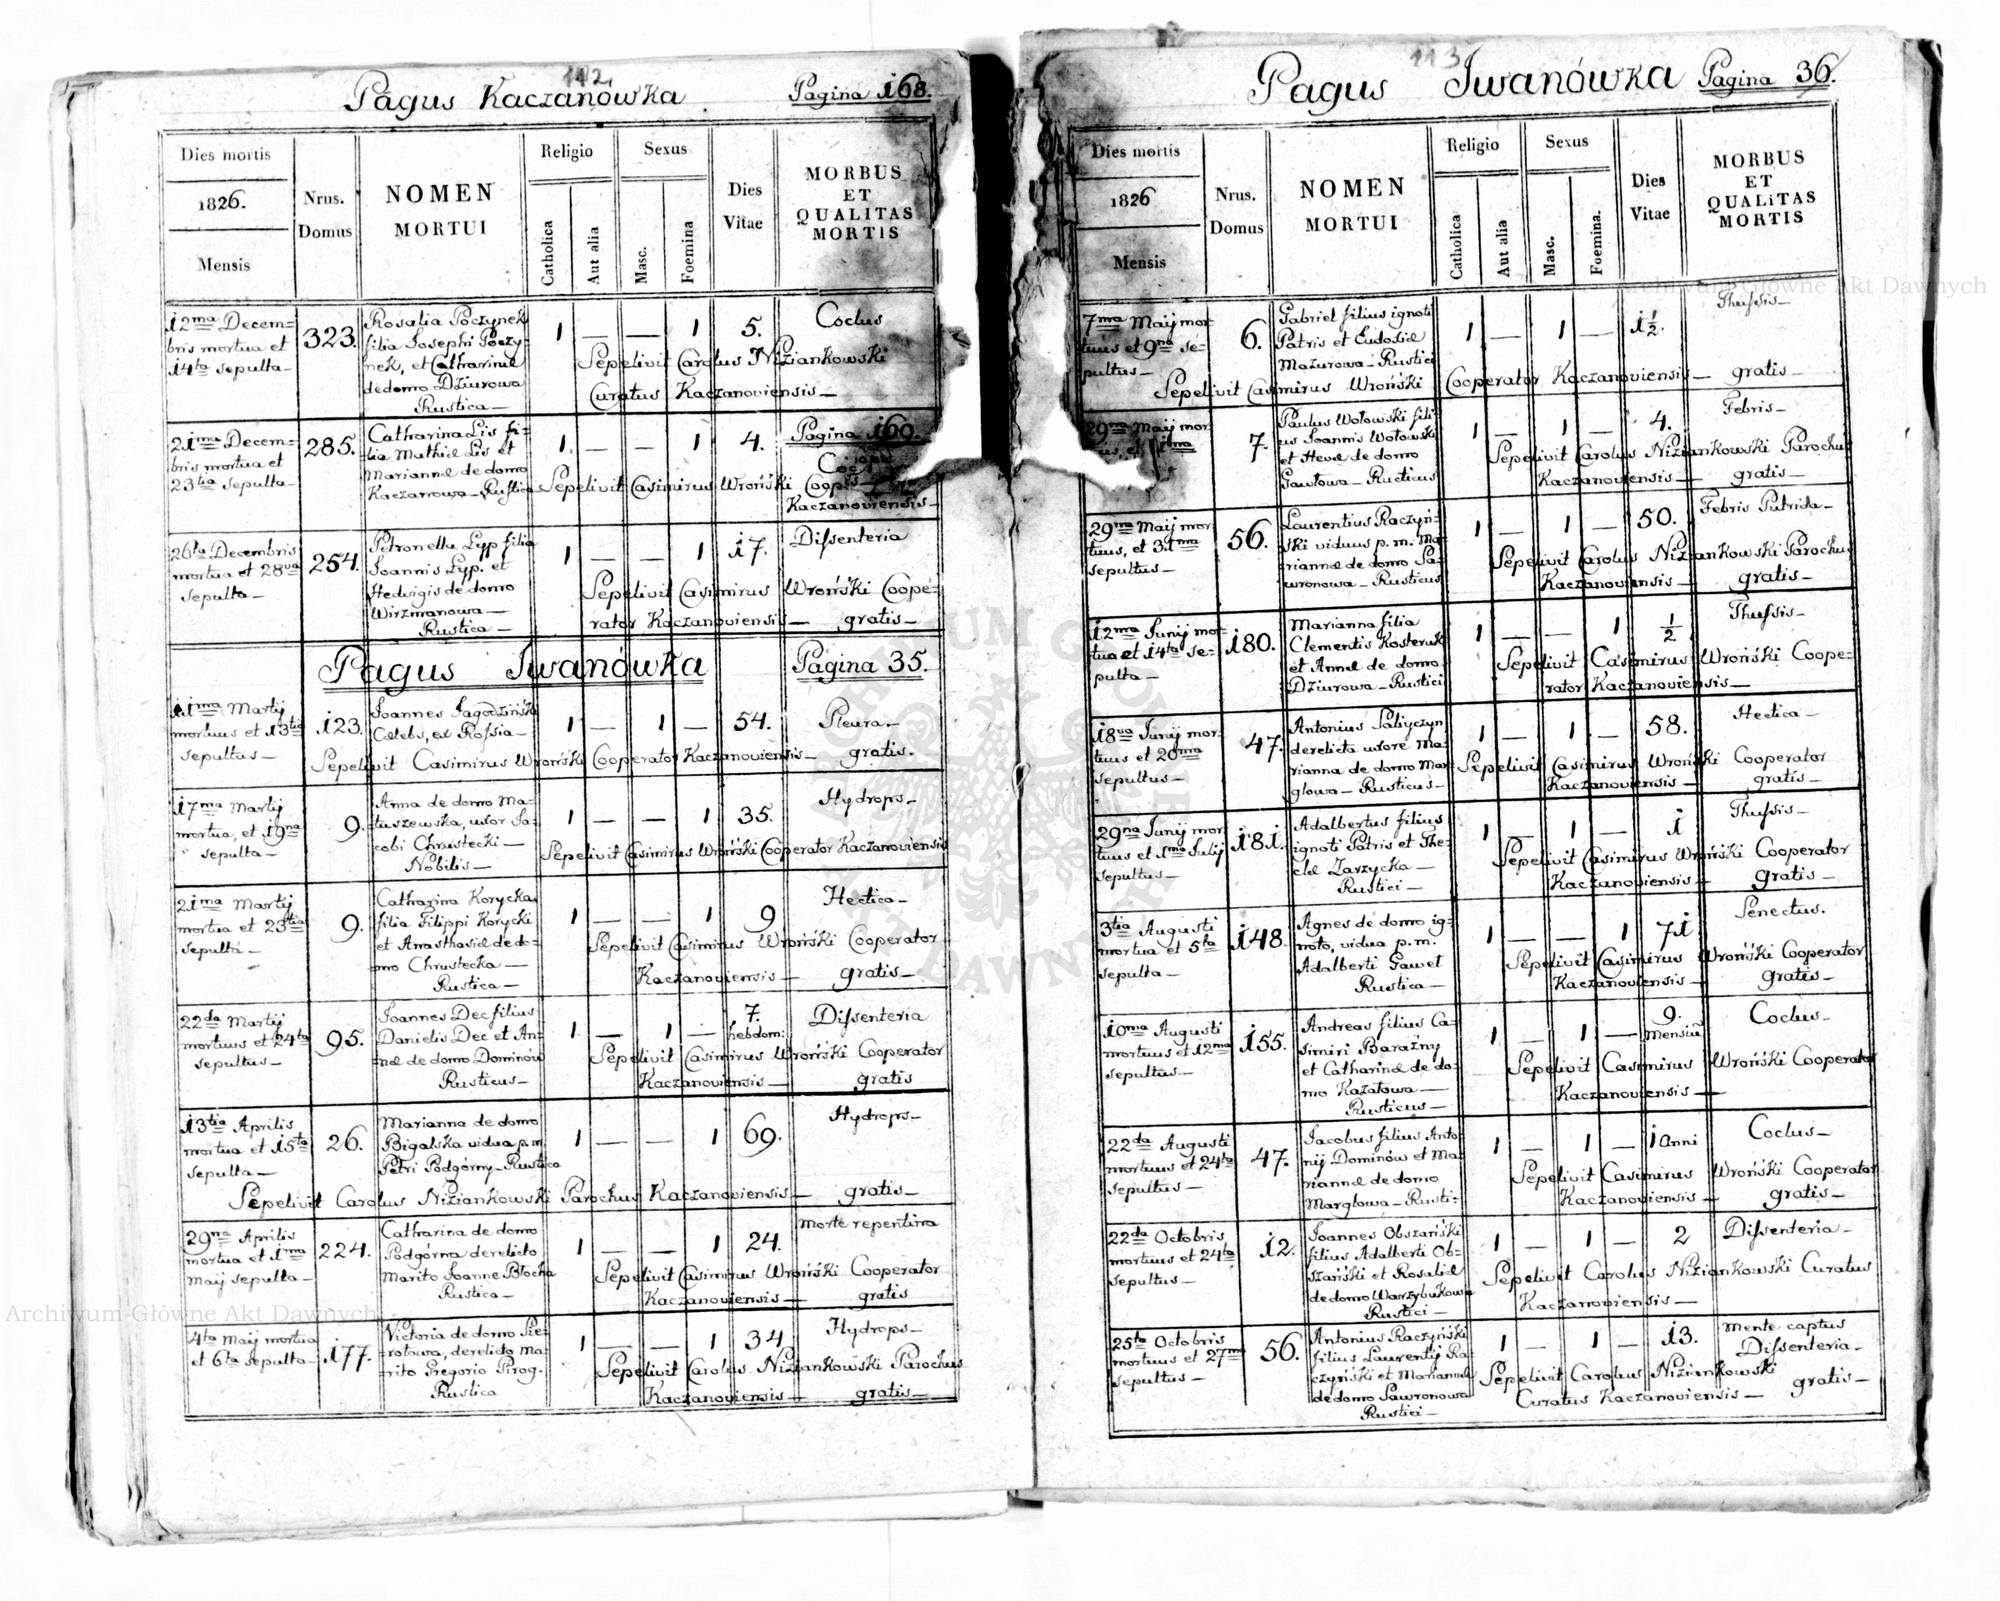 112.
Pagus Kaczanówka Pagina 168.
Dies mortis
1826.
Mensis
Nrus.
Domus
NOMEN
MORTUI
Religio
Catholica
Aut alia
Sexus
Masc.
Foemina
Dies
Vitae
MORBUS
ET
QUALITAS
MORTIS
12ma Decem= 323. Rosalia Poczynek 1 — — 1 5. Coclus
bris mortua et filia Josephi Poczy=
14ta sepulta — nek, et Catharinae Sepelivit Carolus Niziankowski
de domo Dziurowa Curatus Kaczanoviensis —
Rustica —
21ma Decem= 285. Catharina Lis fi= 1. — — 1 4. Pagina 169.
bris mortua et lia Mathiae Lis et
23tia sepulta — Mariannae de domo
Kaczarowa — Rustica Sepelivit Casimirus Wroński
Kaczanoviensis —
26ta Decembris 254. Petronella Lyp filia 1 — — 1 17. Dissenteria
mortua et 28va Joannis Lyp. et
sepulta — Hedvigis de domo Sepelivit Casimirus Wroński Coope=
Wirzmanowa — rator Kaczanoviensis — gratis —
Rustica —
Pagus Iwanówka Pagina 35.
11ma Martij 123. Joannes Jagodziński 1 — 1 — 54. Pleura —
mortuus et 13tia Caelebs, ex Rossia —
sepultus — Sepelivit Casimirus Wroński Cooperator Kaczanoviensis — gratis.
17ma Martij 9. Anna de domo Ma= 1 — — 1 35. Hydrops —
mortua, et 19na tuszewska, uxor Ja=
sepulta — cobi Chrustecki — Sepelivit Casimirus Wroński Cooperator Kaczanoviensis
Nobilis —
21ma Martij 9. Catharina Korycka 1 — — 1 9 Hectica —
mortua et 23tia filia Filippi Korycki
sepulta — et Anasthasiae de do= Sepelivit Casimirus Wroński Cooperator
mo Chrustecka — Kaczanoviensis — gratis —
Rustica —
22da Martij 95. Joannes Dec filius 1 — 1 — 7. hebdom: Dissenteria
mortuus et 24ta Danielis Dec et An=
sepultus — nae de domo Dominów Sepelivit Casimirus Wroński Cooperator
Rusticus — Kaczanoviensis — gratis
13tia Aprilis 26. Marianna de domo 1 — — 1 69. Hydrops —
mortua et 15ta Bigalska vidua p. m.
sepulta — Petri Podgórny — Rustica
Sepelivit Carolus Niziankowski Parochus Kaczanoviensis — gratis —
29na Aprilis 224. Catharina de domo 1 — — 1 24. Morte repentina
mortua et 1ma Podgórna derelicto
Maij sepulta — Marito Joanne Błocha Sepelivit Casimirus Wroński Cooperator
Rustica — Kaczanoviensis — gratis
4ta Maij mortua 177. Victoria de domo Sie= 1 — — 1 34 Hydrops —
et 6ta sepulta — rotowa, derelicto Ma=
rito Gregorio Pirog. Sepelivit Carolus Niziankowski Parochus
Rustica Kaczanoviensis — gratis —
113
Pagus Iwanówka Pagina 36.
Dies mortis
1826
Mensis
Nrus.
Domus
NOMEN
MORTUI
Religio
Catholica
Aut alia
Sexus
Masc.
Foemina.
Dies
Vitae
MORBUS
ET
QUALiTAS
MORTIS
7ma Maij mor= 6. Gabriel filius ignoti 1 — 1 — 1 1/2. Thussis —
tuus et 9na se= Patris et Eudosiae
pultus — Mazurowa — Rustici
Sepelivit Casimirus Wroński Cooperator Kaczanoviensis — gratis —
29na Maij mor= 7. Paulus Wołowski fili= 1 — 1 — 4. Febris —
us Joannis Wołowski
et Hevae de domo Sepelivit Carolus Niziankowski Parochus
Gawłowa — Rusticus Kaczanoviensis — gratis —
29na Maij mor= 56. Laurentius Raczyń= 1 — 1 — 50. Febris Putrida —
tuus, et 31ma ski viduus p. m. Ma=
sepultus — riannae de domo Ga= Sepelivit Carolus Niziankowski Parochus
wronowa — Rusticus Kaczanoviensis — gratis —
12ma Junij mor= 180. Marianna filia 1 — — 1 1/2 Thussis —
tua et 14ta se= Clementis Kosteruk
pulta — et Annae de domo Sepelivit Casimirus Wroński Coope=
Dziurowa — Rustici rator Kaczanoviensis —
18va Junij mor= 47. Antonius Paliyczyn 1 — 1 — 58. Hectica —
tuus et 20ma derelicta uxore Ma=
sepultus — rianna de domo Mar= Sepelivit Casimirus Wroński Cooperator
głowa — Rusticus — Kaczanoviensis — gratis —
29na Junij mor= 181. Adalbertus filius 1 — 1 — 1 Thussis —
tuus et 1ma Julij ignoti Patris et The=
sepultus — clae Zarzycka — Sepelivit Casimirus Wroński Cooperator
Rustici — Kaczanoviensis — gratis —
3tia Augusti 148. Agnes de domo ig= 1 — — 1 71 Senectus.
mortua et 5ta noto, vidua p. m.
sepulta — Adalberti Gaweł Sepelivit Casimirus Wroński Cooperator
Rustica — Kaczanoviensis — gratis —
10ma Augusti 155. Andreas filius Ca= 1 — 1 — 9. Mensiu Coclus —
mortuus et 12ma simiri Barażny
sepultus — et Catharinae de do= Sepelivit Casimirus Wroński Cooperator
mo Kazatowa — Kaczanoviensis —
Rusticus —
22da Augusti 47. Jacobus filius Anto= 1 — 1 — 1 Anni Coclus —
mortuus et 24ta nij Dominów et Ma=
sepultus — riannae de domo Sepelivit Casimirus Wroński Cooperator
Margłowa — Rusti= Kaczanoviensis — gratis —
22da Octobris 12. Joannes Obszański 1 — 1 — 2 Dissenteria —
mortuus et 24ta filius Adalberti Ob=
sepultus — szański et Rosaliae Sepelivit Carolus Niziankowski Curatus
de domo Warzybukowa Kaczanoviensis —
Rustici —
25ta Octobris 56. Antonius Raczyński 1 — 1 — 13. Mente captus
mortuus et 27ma filius Laurentij Ra= Dissenteria —
sepultus — czyński et Mariannae Sepelivit Carolus Niziankowski
de domo Gawronowa Curatus Kaczanoviensis — gratis —
Rustici —
Archiwum Główne Akt Dawnych
Archiwum Główne Akt Dawnych
ARCHIWUM GŁÓWNE AKT DAWNYCH